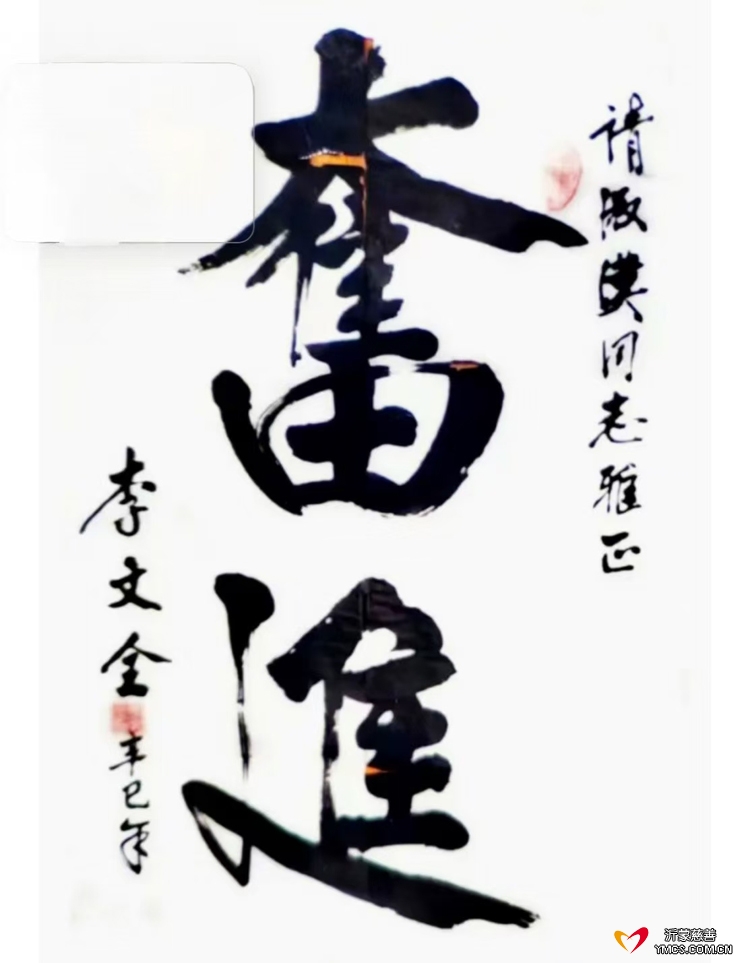 請淑漢同志雅正
奮進
李文全
辛巳年
沂蒙慈善
YMCS.COM.CN